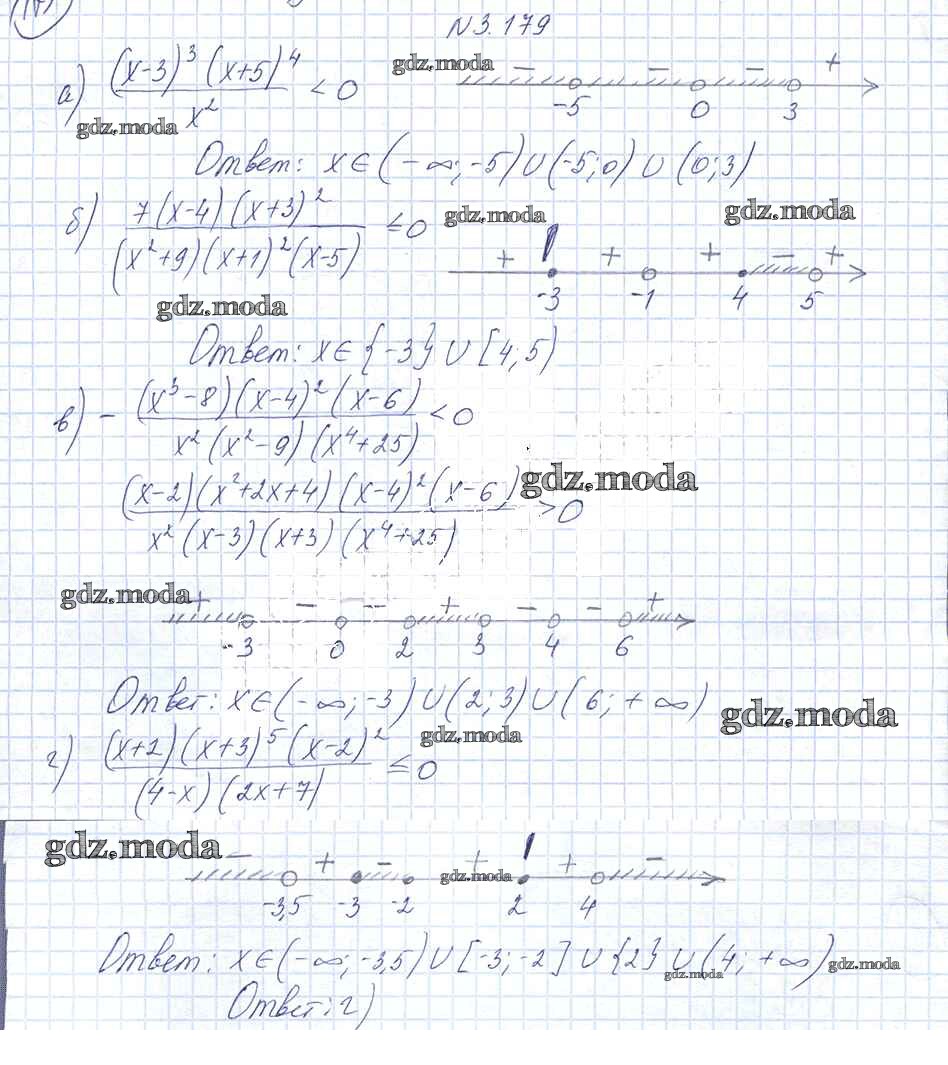 N 3.179
а) (x-3)³ (x+5)⁴ / x² < 0
gdz.moda
- - - +
-5 0 3
gdz.moda
Ответ: x ∈ (-∞; -5) ∪ (-5; 0) ∪ (0; 3)
б) 7(x-4)(x+3)² / (x²+9)(x+1)²(x-5) ≤ 0
gdz.moda
gdz.moda
+ ! + + - +
-3 -1 4 5
gdz.moda
Ответ: x ∈ {-3} ∪ [4; 5)
в) - (x³-8)(x-4)²(x-6) / x²(x²-9)(x⁴+25) < 0
(x-2)(x²+2x+4)(x-4)²(x-6) / x²(x-3)(x+3)(x⁴+25) > 0
gdz.moda
gdz.moda
+ - - + - - +
-3 0 2 3 4 6
Ответ: x ∈ (-∞; -3) ∪ (2; 3) ∪ (6; +∞)
gdz.moda
г) (x+2)(x+3)⁵(x-2)² / (4-x)(2x+7) ≤ 0
gdz.moda
gdz.moda
- + - + ! + -
gdz.moda
-3,5 -3 -2 2 4
Ответ: x ∈ (-∞; -3,5) ∪ [-3; -2] ∪ {2} ∪ (4; +∞)
gdz.moda
gdz.moda
Ответ: г)